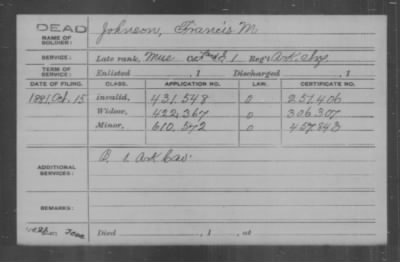 DEAD
NAME OF SOLDIER: Johnson, Francis M
SERVICE: Late rank, Mus 1 Reg't Ark. Inf
TERM OF SERVICE: Enlisted , 1 Discharged , 1
DATE OF FILING. CLASS. APPLICATION NO. LAW. CERTIFICATE NO.
1881, Oct. 15 Invalid, 431.548 0 257.406
Widow, 422,367 0 306.307
Minor, 610,572 0 457843
ADDITIONAL SERVICES: 1 Ark Cav.
REMARKS:
Died , 1 , at